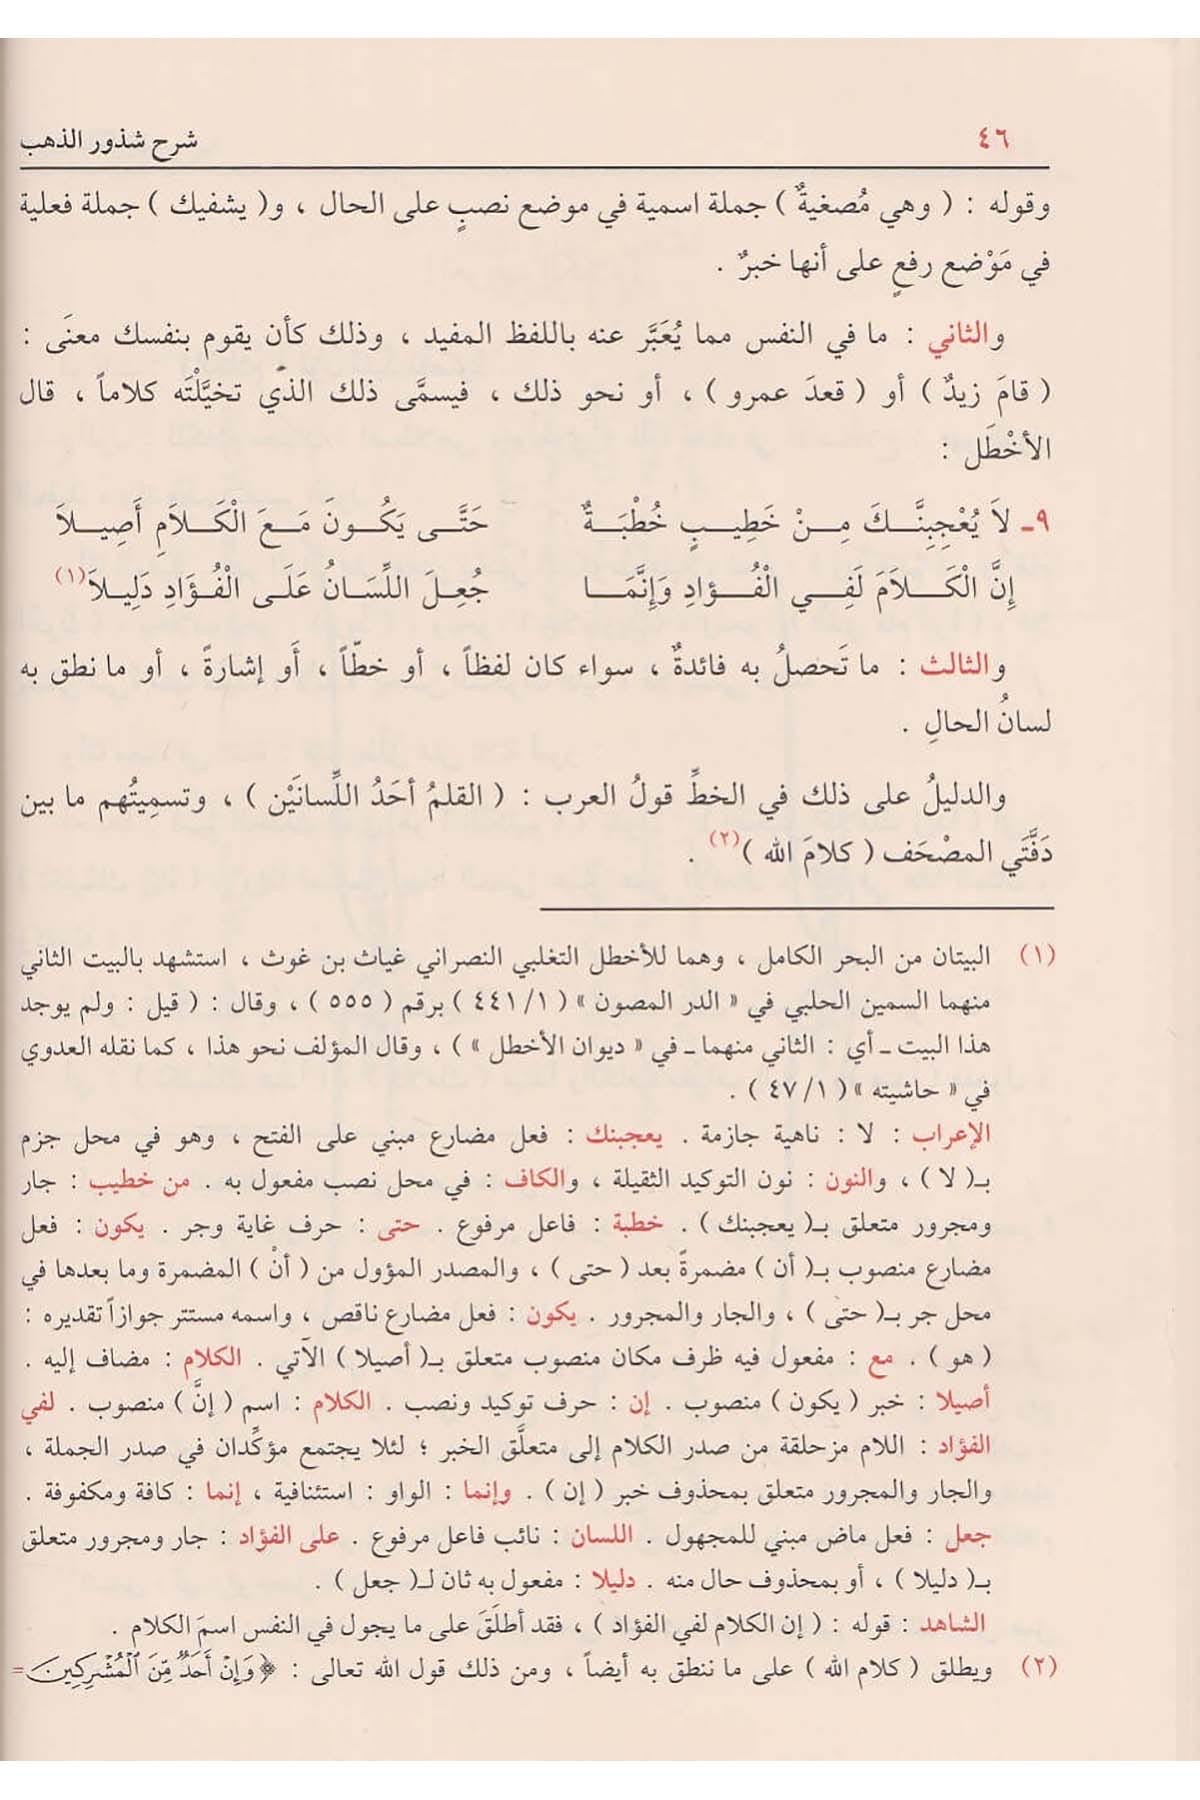 ٤٦ شرح شذور الذهب
وقوله : ( وهي مُصغيةٌ ) جملة اسمية في موضع نصبٍ على الحال ، و( يشفيك ) جملة فعلية
في مَوْضع رفعٍ على أنها خبرٌ .
والثاني : ما في النفس مما يُعَبَّر عنه باللفظ المفيد ، وذلك كأن يقوم بنفسك معنَى :
( قامَ زيدٌ ) أو ( قعدَ عمرو ) ، أو نحو ذلك ، فيسمَّى ذلك الذي تخيَّلْتَه كلاماً ، قال
الأخْطَل :
٩ـ لاَ يُعْجِبَنَّـــكَ مِـــنْ خَطِيـــبٍ خُطْبَـــةٌ حَتَّـــى يَكُـــونَ مَـــعَ الْكَـــلاَمِ أَصِيـــلاَ
إِنَّ الْكَـــلاَمَ لَفِـــي الْفُـــؤَادِ وَإِنَّمَـــا جُعِـــلَ اللِّسَـــانُ عَلَـــى الْفُـــؤَادِ دَلِيـــلاَ(١)
والثالث : ما تَحصلُ به فائدةٌ ، سواء كان لفظاً ، أو خطّاً ، أَو إشارةً ، أو ما نطق به
لسانُ الحالِ .
والدليلُ على ذلك في الخطِّ قولُ العرب : ( القلمُ أحَدُ اللِّسانَيْن ) ، وتسمِيتُهم ما بين
دَفَّتَي المصْحَف ( كلامَ الله )(٢) .
(١) البيتان من البحر الكامل ، وهما للأخطل التغلبي النصراني غياث بن غوث ، استشهد بالبيت الثاني
منهما السمين الحلبي في « الدر المصون » ( ١/ ٤٤١ ) برقم ( ٥٥٥ ) ، وقال : ( قيل : ولم يوجد
هذا البيت ـ أي : الثاني منهما ـ في « ديوان الأخطل » ) ، وقال المؤلف نحو هذا ، كما نقله العدوي
في « حاشيته » ( ١/ ٤٧ ) .
الإعراب : لا : ناهية جازمة . يعجبنك : فعل مضارع مبني على الفتح ، وهو في محل جزم
بـ( لا ) ، والنون : نون التوكيد الثقيلة ، والكاف : في محل نصب مفعول به . من خطيب : جار
ومجرور متعلق بـ( يعجبنك ) . خطبة : فاعل مرفوع . حتى : حرف غاية وجر . يكون : فعل
مضارع منصوب بـ( أن ) مضمرةً بعد ( حتى ) ، والمصدر المؤول من ( أنْ ) المضمرة وما بعدها في
محل جر بـ( حتى ) ، والجار والمجرور . يكون : فعل مضارع ناقص ، واسمه مستتر جوازاً تقديره :
( هو ) . مع : مفعول فيه ظرف مكان منصوب متعلق بـ( أصيلا ) الآتي . الكلام : مضاف إليه .
أصيلا : خبر ( يكون ) منصوب . إن : حرف توكيد ونصب . الكلام : اسم ( إنَّ ) منصوب . لفي
الفؤاد : اللام مزحلقة من صدر الكلام إلى متعلَّق الخبر ؛ لئلا يجتمع مؤكِّدان في صدر الجملة ،
والجار والمجرور متعلق بمحذوف خبر ( إن ) . وإنما : الواو : استئنافية ، إنما : كافة ومكفوفة .
جعل : فعل ماض مبني للمجهول . اللسان : نائب فاعل مرفوع . على الفؤاد : جار ومجرور متعلق
بـ( دليلا ) ، أو بمحذوف حال منه . دليلا : مفعول به ثان لـ( جعل ) .
الشاهد : قوله : ( إن الكلام لفي الفؤاد ) ، فقد أطلَقَ على ما يجول في النفس اسمَ الكلام .
(٢) ويطلق ( كلام الله ) على ما ننطق به أيضاً ، ومن ذلك قول الله تعالى : ﴿ وَإِنْ أَحَدٌ مِّنَ ٱلْمُشْرِكِينَ =